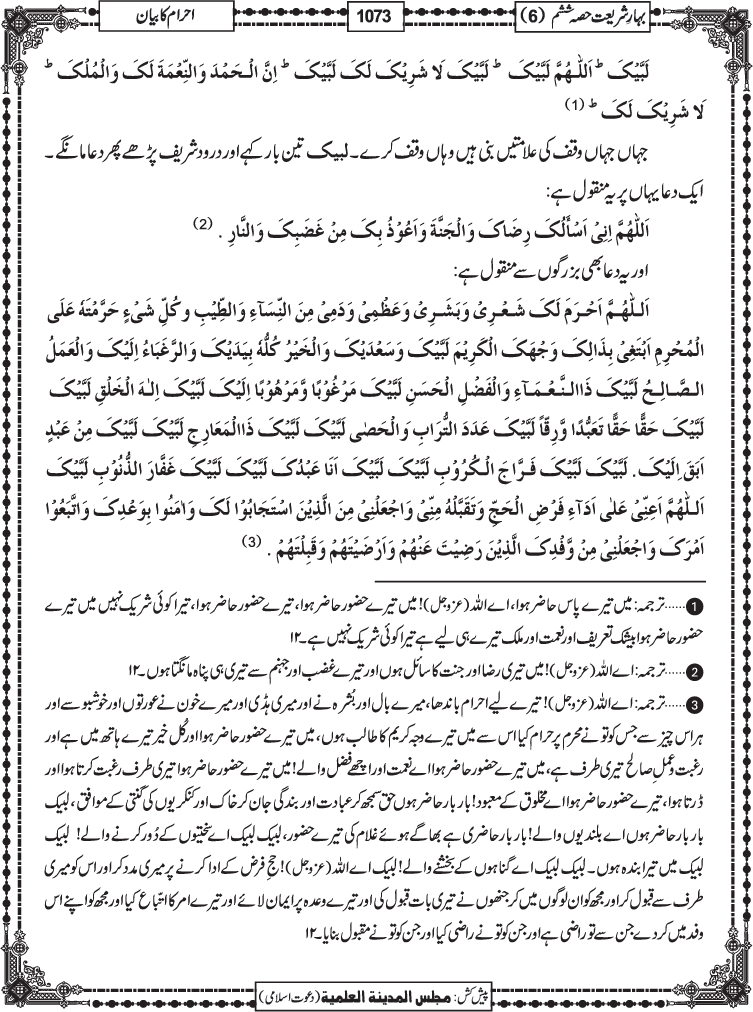 بہارِ شریعت حصہ ششم (6)
1073
احرام کا بیان
لَبَّیْکَ ؕ اَللّٰہُمَّ لَبَّیْکَ ؕ لَبَّیْکَ لَا شَرِیْکَ لَکَ لَبَّیْکَ ؕ اِنَّ الْـحَمْدَ وَالنِّعْمَۃَ لَکَ وَالْمُلْکَ ؕ
لَا شَرِیْکَ لَکَ ؕ (1)
جہاں جہاں وقف کی علامتیں بنی ہیں وہاں وقف کرے۔ لبیک تین بار کہے اور درود شریف پڑھے پھر دعا مانگے۔
ایک دعا یہاں پر یہ منقول ہے:
اَللّٰہُمَّ اِنِیْ اَسْأَلُکَ رِضَاکَ وَالْجَنَّۃَ وَاَعُوْذُ بِکَ مِنْ غَضَبِکَ وَالنَّارِ . (2)
اور یہ دعا بھی بزرگوں سے منقول ہے:
اَللّٰہُمَّ اَحْرَمَ لَکَ شَعْرِیْ وَبَشَرِیْ وَعَظْمِیْ وَدَمِیْ مِنَ النِّسَآءِ وَالطِّیْبِ وَکُلِّ شَیْءٍ حَرَّمْتَہٗ عَلَی
الْمُحْرِمِ اَبْتَغِیْ بِذَالِکَ وَجْہَکَ الْکَرِیْمَ لَبَّیْکَ وَسَعْدَیْکَ وَالْخَیْرُ کُلُّہٗ بِیَدَیْکَ وَالرَّغْبَاءُ اِلَیْکَ وَالْعَمَلُ
الصَّالِحُ لَبَّیْکَ ذَاالنَّعْمَآءِ وَالْفَضْلِ الْحَسَنِ لَبَّیْکَ مَرْغُوْبًا وَّمَرْھُوْبًا اِلَیْکَ لَبَّیْکَ اِلٰہَ الْخَلْقِ لَبَّیْکَ
لَبَّیْکَ حَقًّا حَقًّا تَعَبُّدًا وَّرِقًّا لَبَّیْکَ عَدَدَ التُّرَابِ وَالْحَصٰی لَبَّیْکَ لَبَّیْکَ ذَاالْمَعَارِجِ لَبَّیْکَ لَبَّیْکَ مِنْ عَبْدٍ
اَبَقَ اِلَیْکَ. لَبَّیْکَ لَبَّیْکَ فَرَّاجَ الْکُرُوْبِ لَبَّیْکَ لَبَّیْکَ اَنَا عَبْدُکَ لَبَّیْکَ لَبَّیْکَ غَفَّارَ الذُّنُوْبِ لَبَّیْکَ
اَللّٰہُمَّ اَعِنِّیْ عَلٰی اَدَآءِ فَرْضِ الْحَجِّ وَتَقَبَّلْہُ مِنِّیْ وَاجْعَلْنِیْ مِنَ الَّذِیْنَ اسْتَجَابُوْا لَکَ وَاٰمَنُوا بِوَعْدِکَ وَاتَّبَعُوْا
اَمْرَکَ وَاجْعَلْنِیْ مِنْ وَّفْدِکَ الَّذِیْنَ رَضِیْتَ عَنْھُمْ وَاَرْضَیْتَھُمْ وَقَبِلْتَھُمْ . (3)
1 ......ترجمہ: میں تیرے پاس حاضر ہوا، اے اللہ (عزوجل)! میں تیرے حضور حاضر ہوا، تیرے حضور حاضر ہوا، تیرا کوئی شریک نہیں میں تیرے
حضور حاضر ہوا بیشک تعریف اور نعمت اور ملک تیرے ہی لیے ہے تیرا کوئی شریک نہیں ہے۔ ۱۲
2 ......ترجمہ: اے اللہ (عزوجل)! میں تیری رضا اور جنت کا سائل ہوں اور تیرے غضب اور جہنم سے تیری ہی پناہ مانگتا ہوں۔ ۱۲
3 ......ترجمہ: اے اللہ (عزوجل)! تیرے لیے احرام باندھا، میرے بال اور بُشرہ نے اور میری ہڈی اور میرے خون نے عورتوں اور خوشبو سے اور
ہر اس چیز سے جس کو تو نے محرم پر حرام کیا اس سے میں تیرے وجہ کریم کا طالب ہوں، میں تیرے حضور حاضر ہوا اور کُل خیر تیرے ہاتھ میں ہے اور
رغبت و عملِ صالح تیری طرف ہے، میں تیرے حضور حاضر ہوا اے نعمت اور اچھے فضل والے! میں تیرے حضور حاضر ہوا تیری طرف رغبت کرتا ہوا اور
ڈرتا ہوا، تیرے حضور حاضر ہوا اے مخلوق کے معبود! بار بار حاضر ہوں حق سمجھ کر عبادت اور بندگی جان کر خاک اور کنکریوں کی گنتی کے موافق، لبیک
بار بار حاضر ہوں اے بلندیوں والے! بار بار حاضری ہے بھاگے ہوئے غلام کی تیرے حضور، لبیک لبیک اے سختیوں کے دُور کرنے والے! لبیک
لبیک میں تیرا بندہ ہوں۔ لبیک لبیک اے گناہوں کے بخشنے والے! لبیک اے اللہ (عزوجل)! حجِ فرض کے ادا کرنے پر میری مدد کر اور اس کو میری
طرف سے قبول کر اور مجھ کو ان لوگوں میں کر جنھوں نے تیری بات قبول کی اور تیرے وعدہ پر ایمان لائے اور تیرے امر کا اتّباع کیا اور مجھ کو اپنے اس
وفد میں کر دے جن سے تو راضی ہے اور جن کو تو نے راضی کیا اور جن کو تو نے مقبول بنایا۔ ۱۲
پیش کش: مجلس المدینۃ العلمیۃ (دعوتِ اسلامی)